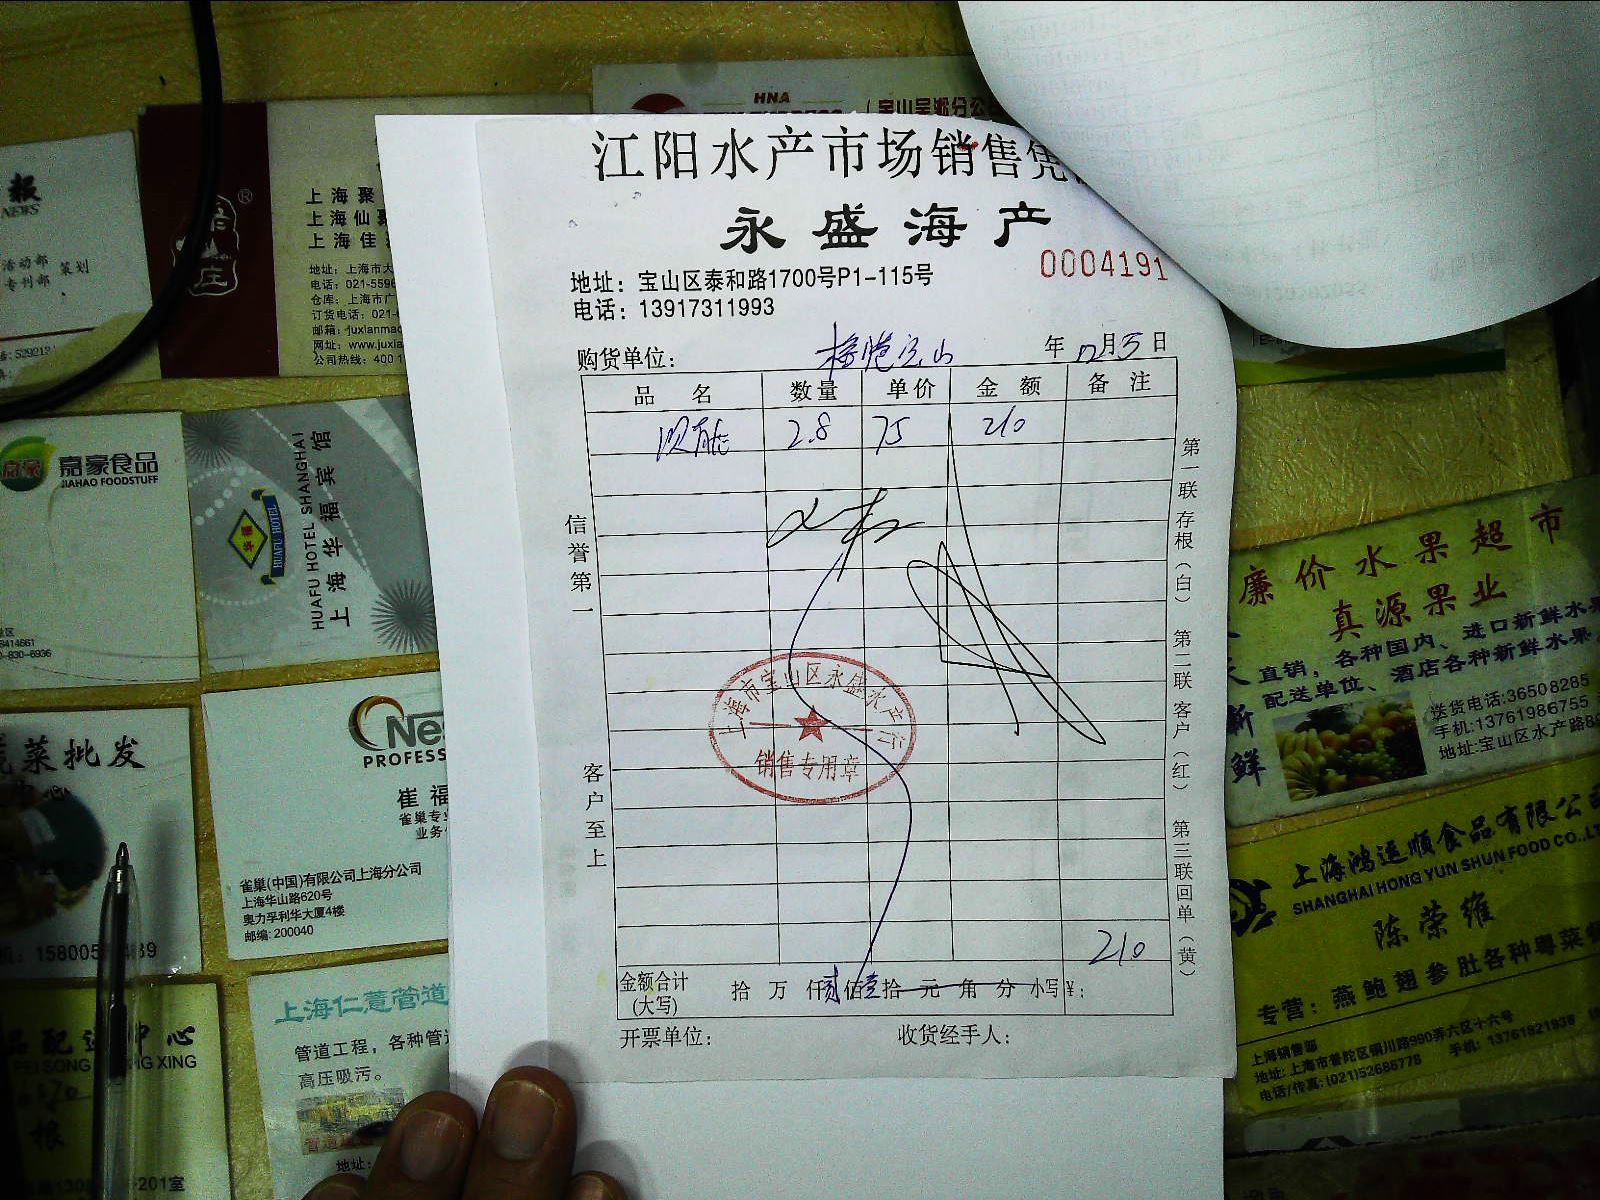 江阳水产市场销售凭
永盛海产
0004191
地址：宝山区泰和路1700号P1-115号
电话：13917311993
购货单位：
年 12月5日
品名 数量 单价 金额 备注
2.8 75 210
信誉第一
客户至上
第一联存根（白） 第二联客户（红） 第三联回单（黄）
上海市宝山区永盛水产行
销售专用章
210
金额合计
(大写)
拾 万 仟贰佰壹拾 元 角 分 小写¥：
开票单位： 收货经手人：
HNA
（宝山吴淞分公
报
NEWS
活动部
专刊部
策划
上海聚
上海仙聚
上海佳
地址：上海市大
电话：021-559
仓库：上海市广
订货电话：021-
邮箱：juxianmao
网址：www.juxia
公司热线：400 1
嘉豪
嘉豪食品
JIAHAO FOODSTUFF
8414661
华福
HUAFU HOTEL
HUAFU HOTEL SHANGHAI
上海华福宾馆
Nes
PROFESS
崔福
雀巢专业
业务
雀巢(中国)有限公司上海分公司
上海华山路620号
奥力孚利华大厦4楼
邮编：200040
蔬菜批发
上海仁薏管道
管道工程，各种管
高压吸污。
地址：
配送中心
PEI SONG
201室
廉价水果超市
真源果业
直销，各种国内、进口新鲜水果
配送单位、酒店各种新鲜水果
新鲜
送货电话:36508285
手机:13761986755
地址:宝山区水产路8
上海鸿运顺食品有限公司
SHANGHAI HONG YUN SHUN FOOD CO.,LT
陈荣维
专营：燕鲍翅参肚各种粤菜
上海销售部
地址：上海市普陀区铜川路990弄六区十六号
电话/传真：(021)52686778 手机：13761821938